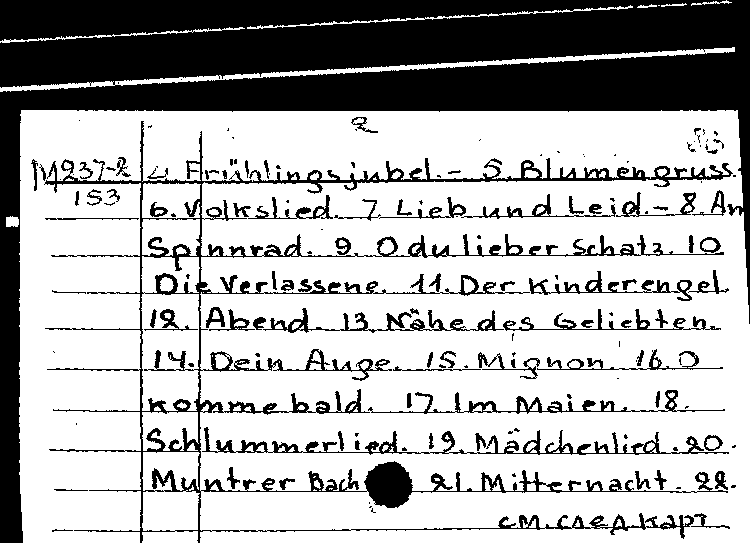 2
М237-2 4. Frühlingsjubel. - 5. Blumengruss.
153
6. Volkslied. 7. Lieb und Leid. - 8. Am
Spinnrad. 9. O du lieber Schatz. 10
Die Verlassene. 11. Der Kinderengel.
12. Abend. 13. Nähe des Geliebten.
14. Dein Auge. 15. Mignon. 16. O
komme bald. 17. Im Maien. 18.
Schlummerlied. 19. Mädchenlied. 20.
Muntrer Bach 21. Mitternacht. 22.
см. след карт